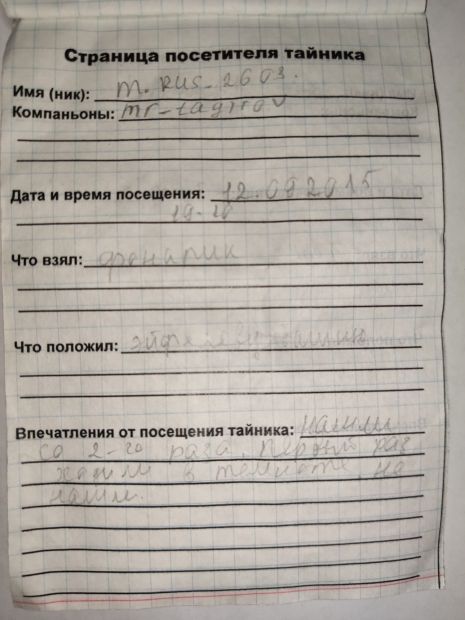 Страница посетителя тайника
Имя (ник): m.RUS_2603.
Компаньоны: mr-tagirov
Дата и время посещения: 12.08 2015
19-
Что взял: фонарик
Что положил: эйфелеву башню
Впечатления от посещения тайника: Нашли
со 2-го раза. Первый раз
в темноте, не
нашли.